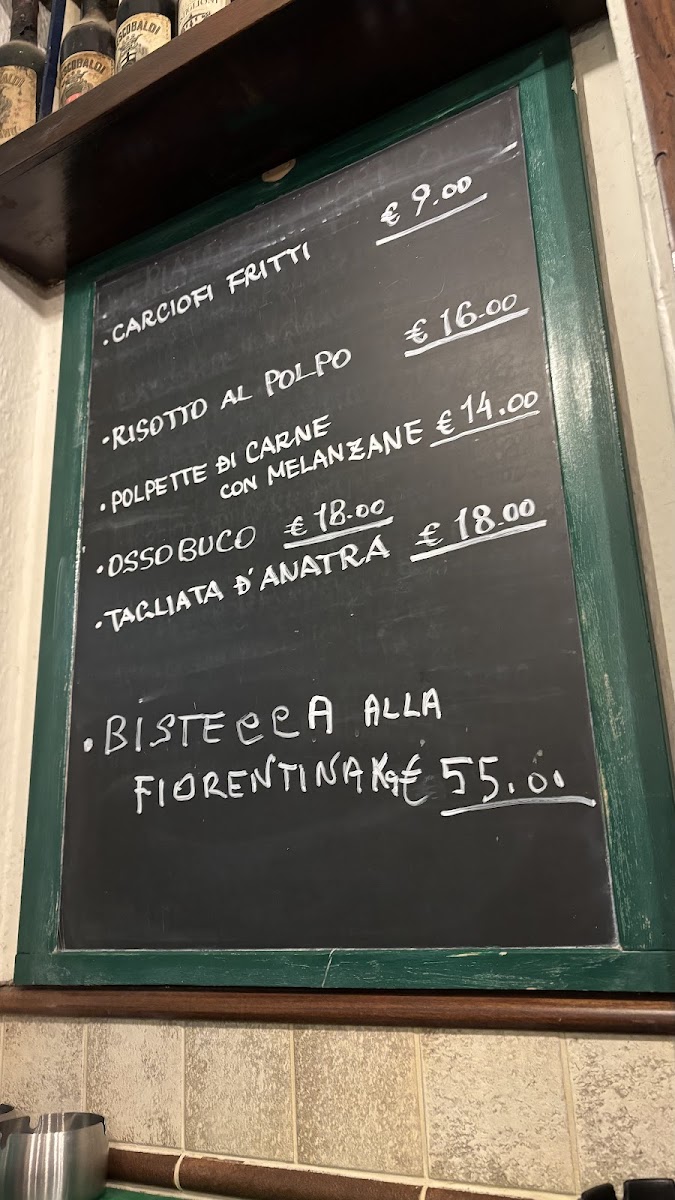 SCOBALDI
SCOBALDI
• CARCIOFI FRITTI € 9.00
• RISOTTO AL POLPO € 16.00
• POLPETTE DI CARNE
CON MELANZANE € 14.00
• OSSOBUCO € 18.00
• TAGLIATA D'ANATRA € 18.00
• BISTECCA ALLA
FIORENTINA Kg € 55.00